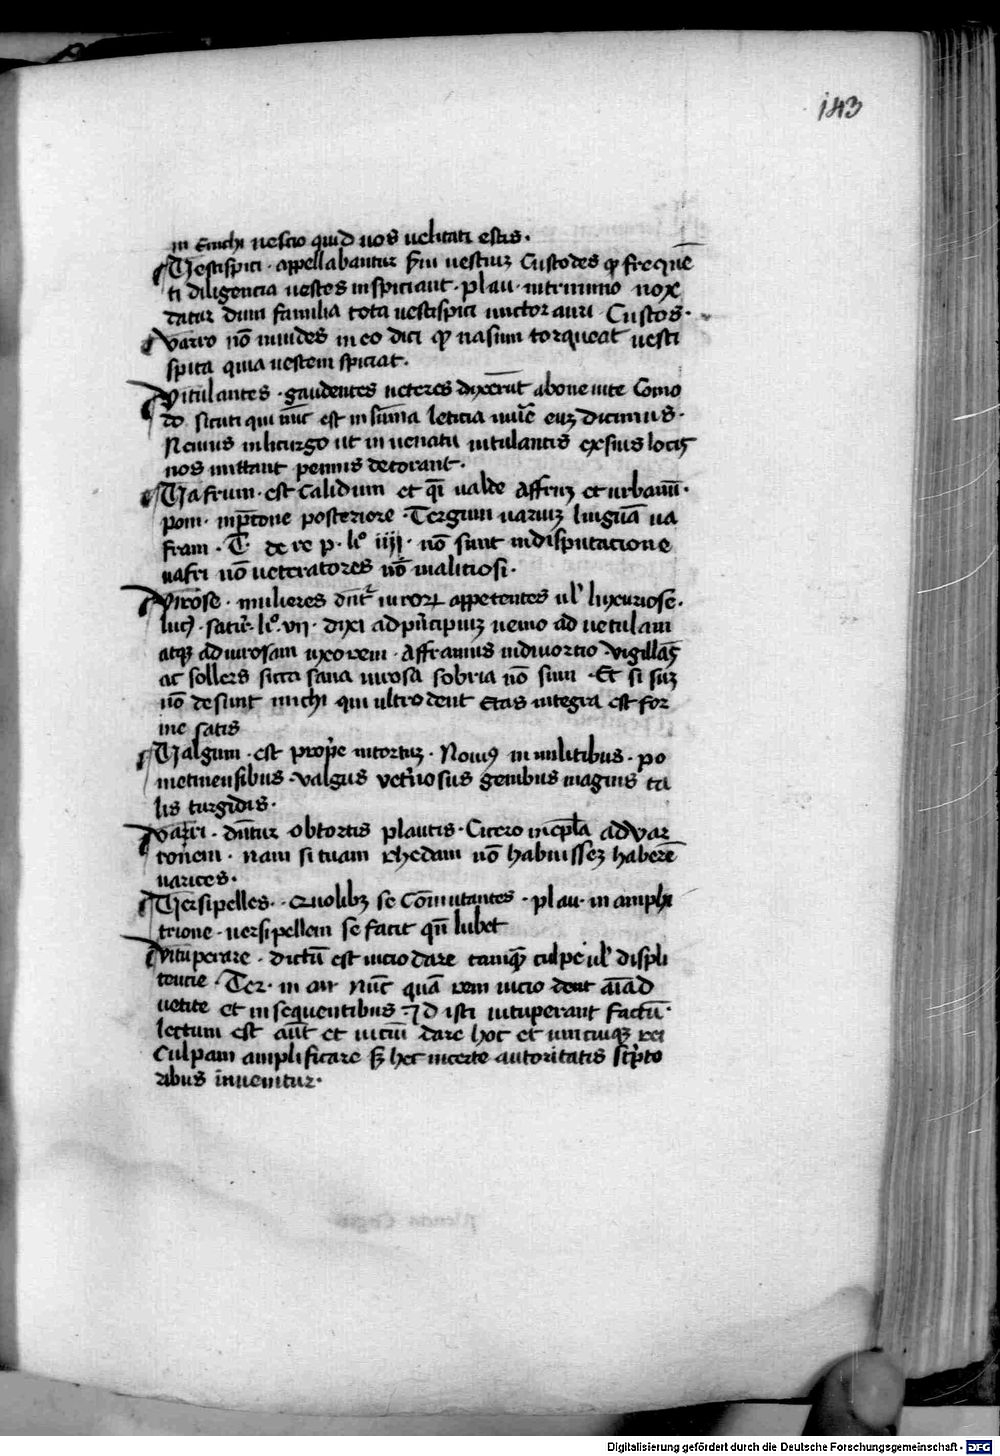 143
in Emchi nescio quid uos uelitati estis.
Vestispici · appellabantur s̄ui uestiuꝫ Custodes ꝙ frequē
ti diligencia uestes inspiciant · plau · intrinumo uox
datur dum familia tota uestispici unctor auri Custos.
Varro nō inuides in eo dici ꝙ nasum torqueat uesti
spita quia uestem spiciat.
Vitulantes · gaudentes ueteres dixerūt a bone uite Como
do sicuti qui nūc est in sūma leticia uiuēe euꝫ dicimus.
Neuius in licurgo ut in uenatu uitulantis ex suis locis
nos mittant pennis decorant.
Vafrum · est Calidum et q̄i ualde Affruꝫ et urbanū.
pom · in p̄cone posteriore · Tergum uaruiꝫ linguā ua
fram · T · de re p · lio iiij · nō sunt in disputacione
uafri nō ueteratores nō malitiosi.
Virose · mulieres dn̄tr uiroꝝ appetentes ul' luxuriose.
luc⁹ · satir̄ · lio · vij · dixi ad pn̄cipiuꝫ uemo ad uetulam
atqꝫ ad uirosam uxorem · Affranius in diuortio vigillās
ac sollers sicca sana uirosa sobria nō sum · Et si suꝫ
nō desunt michi qui ultro dent Etas integra est for
me satis
Valgum · est prop̄e intortuꝫ · Nouiꝰ in militibus · po
metinensibus · valgus vet'nosus genibus magnis ta
lis turgidis.
Varri · dn̄tur obtortis plantis · Cicero in ep̄la ad var
ronem · nam si tuam rhedam nō habuissez haberē
uarices.
Versipelles · quolibꝫ se Cōmutantes · plau · in amphi
trione · uersipellem se facit qn̄ lubet
Vituperare · dictū est uicio dare tamqꝫ culpe ul' displi
tencie · Ter · in an nūc quā rem uicio dent aīad
uetite et in sequentibus · id isti uituperant factū.
lectum est aūt et uiciū dare hoc et unicuiqꝫ rei
Culpam amplificare sꝫ hec incerte autoritatis sc̄pto
ribus inuenitur.
Digitalisierung gefördert durch die Deutsche Forschungsgemeinschaft - DFG